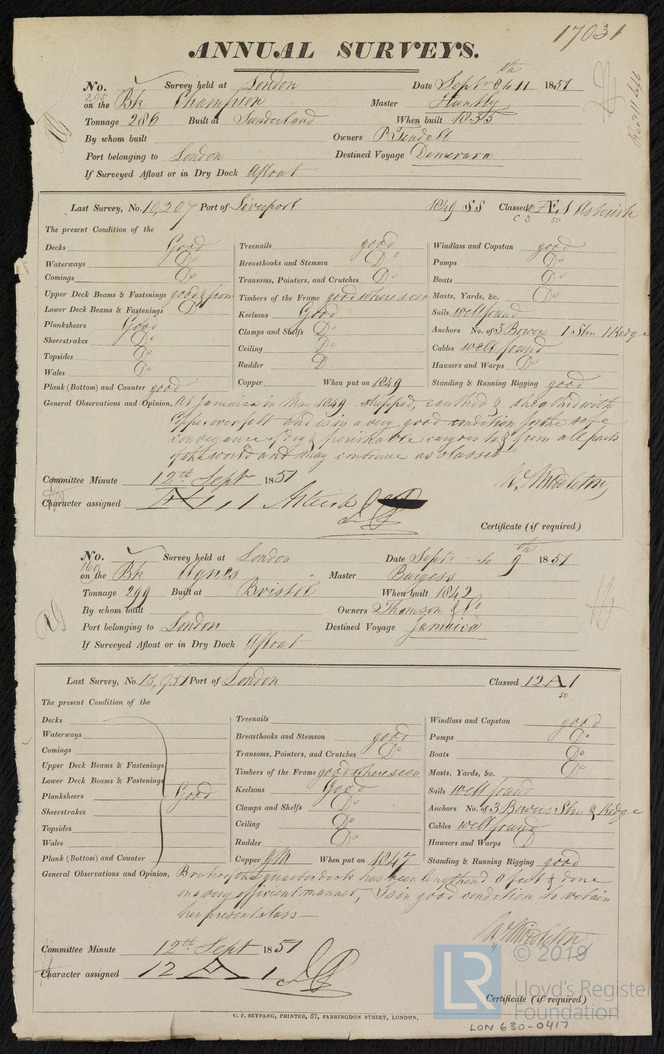 17031
ANNUAL SURVEYS.
No. 205 Survey held at London Date Septr 11th 1851 Recd 11 Sept
on the Bk Champion Master Huntly
Tonnage 286 Built at Sunderland When built 1835
By whom built Owners P. Tindall
Port belonging to London Destined Voyage Demerara
If Surveyed Afloat or in Dry Dock Afloat
Last Survey, No. 10,207 Port of Liverpool 1849 SS Classed Æ 1 Asterisk
50
The present Condition of the
Decks Good Treenails good Windlass and Capstan good
Waterways Do Breasthooks and Stemson Do Pumps Do
Comings Do Transoms, Pointers, and Crutches Do Boats Do
Upper Deck Beams & Fastenings good & firm Timbers of the Frame good where seen Masts, Yards, &c. Do
Lower Deck Beams & Fastenings Do Keelsons Good Sails well found
Planksheers Good Clamps and Shelfs Do Anchors No. of 3 Bowers 1 Stm 1 Kedge
Sheerstrakes Do Ceiling Do Cables well found
Topsides Do Rudder D Hawsers and Warps Do
Wales Do Copper When put on 1849 Standing & Running Rigging good
Plank (Bottom) and Counter good
General Observations and Opinion, At Jamaica in May 1849 stripped, caulked & sheathed with
Copper over felt and is in a very good condition for the safe
conveyance of dry & perishable cargoes to & from all parts
of the world and may continue as classed
Committee Minute 12th Sept 1851
Character assigned Æ 1 Asterisk
Certificate (if required)
No. 160 Survey held at London Date Septr 9th 1851
on the Bk Agnes Master Burgess
Tonnage 299 Built at Bristol When built 1842
By whom built Owners Thomson & Co
Port belonging to London Destined Voyage Jamaica
If Surveyed Afloat or in Dry Dock Afloat
Last Survey, No. 15,951 Port of London Classed 12 A 1
50
The present Condition of the
Decks Treenails Windlass and Capstan good
Waterways Breasthooks and Stemson good Pumps Do
Comings Transoms, Pointers, and Crutches Do Boats Do
Upper Deck Beams & Fastenings Timbers of the Frame good where seen Masts, Yards, &c. Do
Lower Deck Beams & Fastenings Keelsons Good Sails well found
Planksheers Good Clamps and Shelfs Do Anchors No. of 3 Bowers Stm & Kedge
Sheerstrakes Ceiling Do Cables well found
Topsides Rudder Do Hawsers and Warps D
Wales Copper YM When put on 1847 Standing & Running Rigging good
Plank (Bottom) and Counter
General Observations and Opinion, Break of quarter deck has been lengthened 8 feet & done
in a very efficient manner, & is in good condition to retain
her present class
Committee Minute 12th Sept 1851
Character assigned 12 A 1
Certificate (if required)
C. F. SEYFANG, PRINTER, 57, FARRINGDON STREET, LONDON.
LON 630-0417
LR
© 2019
Lloyd's Register
Foundation